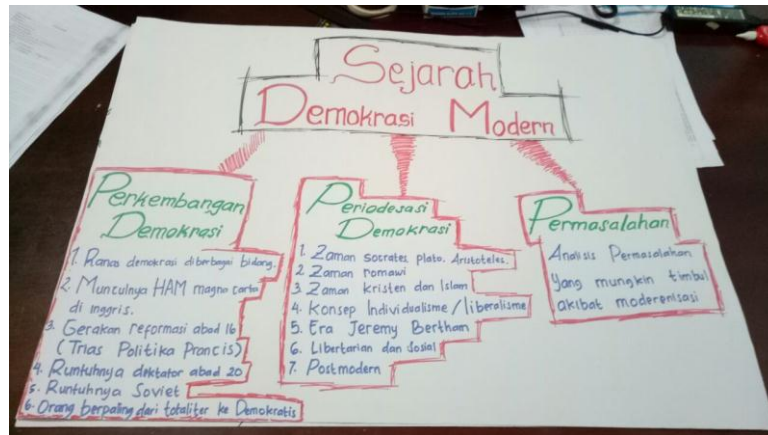 Sejarah
Demokrasi Modern
Perkembangan
Demokrasi
1. Ranas demokrasi diberbagai bidang.
2. Munculnya HAM magna carta
di inggris.
3. Gerakan reformasi abad 16
(Trias Politika Prancis)
4. Runtuhnya dektator abad 20
5. Runtuhnya Soviet
6. Orang berpaling dari totaliter ke Demokratis
Periodesasi
Demokrasi
1. Zaman socrates, plato. Aristoteles.
2. Zaman romawi
3. Zaman kristen dan Islam
4. Konsep Individualisme / liberalisme
5. Era Jeremy Bertham
6. Libertarian dan Sosial
7. Postmodern
Permasalahan
Analisis Permasalahan
yang mungkin timbul
akibat moderenisasi